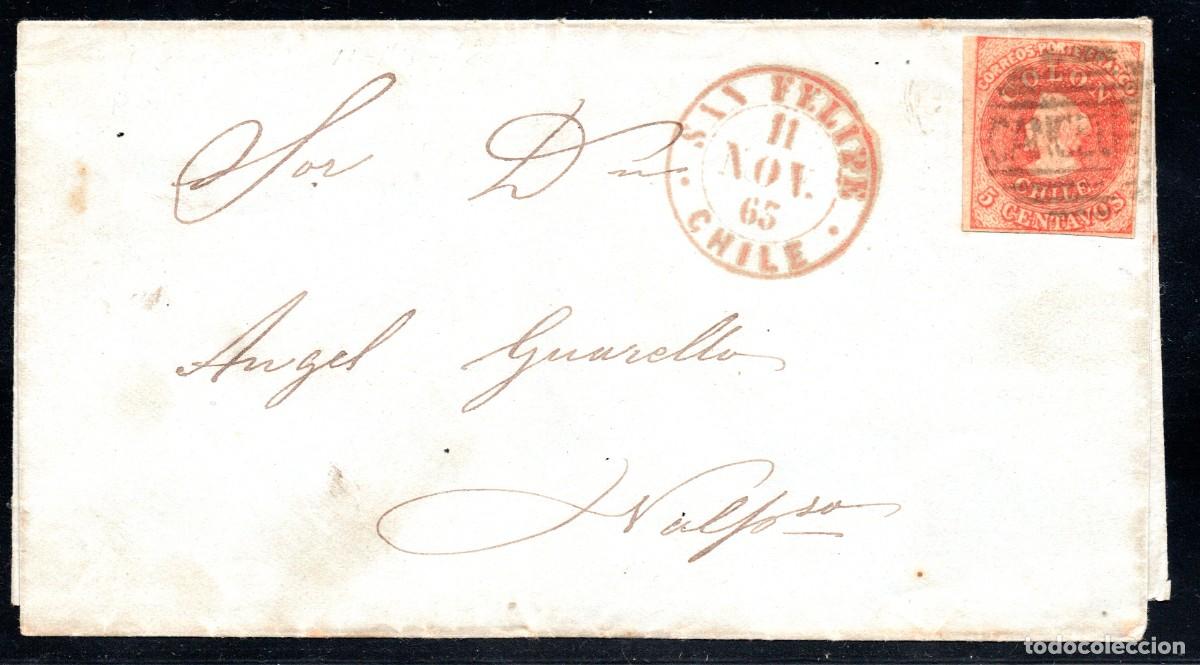 SAN FELIPE
11
NOV.
65
CHILE
CORREOS PORTE FRANCO
COLON
CANCELLED
CHILE
5 CENTAVOS
Sor Dn
Angel Guarello
Valpso
todocoleccion.net